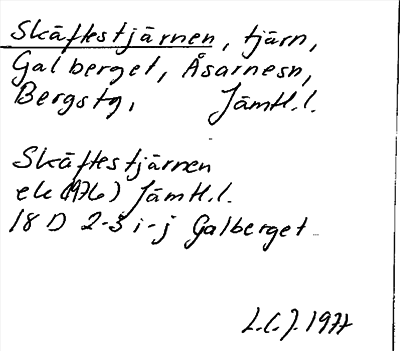 Skäftestjärnen, tjärn,
Galberget, Åsarnesn,
Bergstg, Jämtl.l.
Skäftestjärnen
ek (1976) Jämtl.l.
18 D 2-3 i-j Galberget
L.C.J. 1977